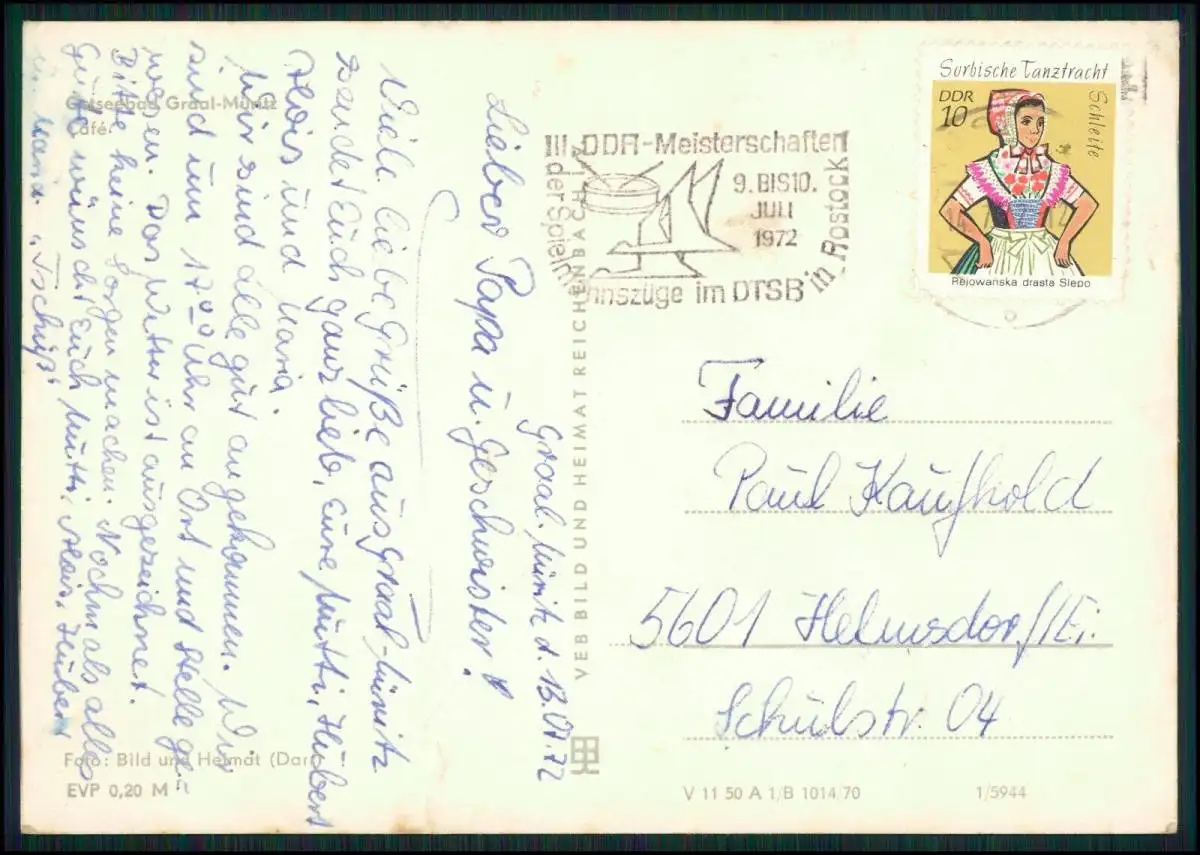 Ostseebad Graal-Müritz
Café
Graal-Müritz d. 13.07.72
Lieber Papa u. Geschwister!
Viele liebe Grüße aus Graal-Müritz
sendet Euch ganz lieb, Eure Mutti, Hubert
und Maria.
Wir sind alle gut angekommen. Wir
sind um 17⁰⁰ Uhr an Ort und Stelle ge-
wesen. Das Wetter ist ausgezeichnet.
Bitte keine Sorgen machen. Nochmals alles
Gute wünscht Euch Mutti, Alois, Hubert
u. Maria "Tschüß"
Foto: Bild und Heimat
EVP 0,20 M
VEB BILD UND HEIMAT REICHENBACH
III. DDR-Meisterschaften
der Spielmannszüge im DTSB in Rostock
9. BIS 10.
JULI
1972
Sorbische Tanztracht
Schleife
DDR
10
Rejowanska drasta Slepo
Familie
Paul Kaufhold
5601 Helmsdorf/Ei.
Schulstr. 04
V 11 50 A 1/B 1014/70
1/5944